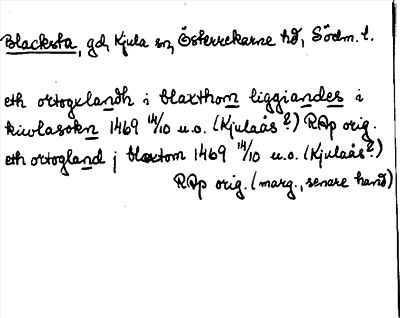 Blacksta, gd, Kjula sn, Österrekarne hd, Södm. l.
eth ortogxlandh i blaxthom liggiandes i
kiwlasokn 1469 14/10 u.o. (Kjulaås?) RAp orig.
eth ortogland j blaxtom 1469 14/10 u.o. (Kjulaås?)
RAp orig. (marg., senare hand)